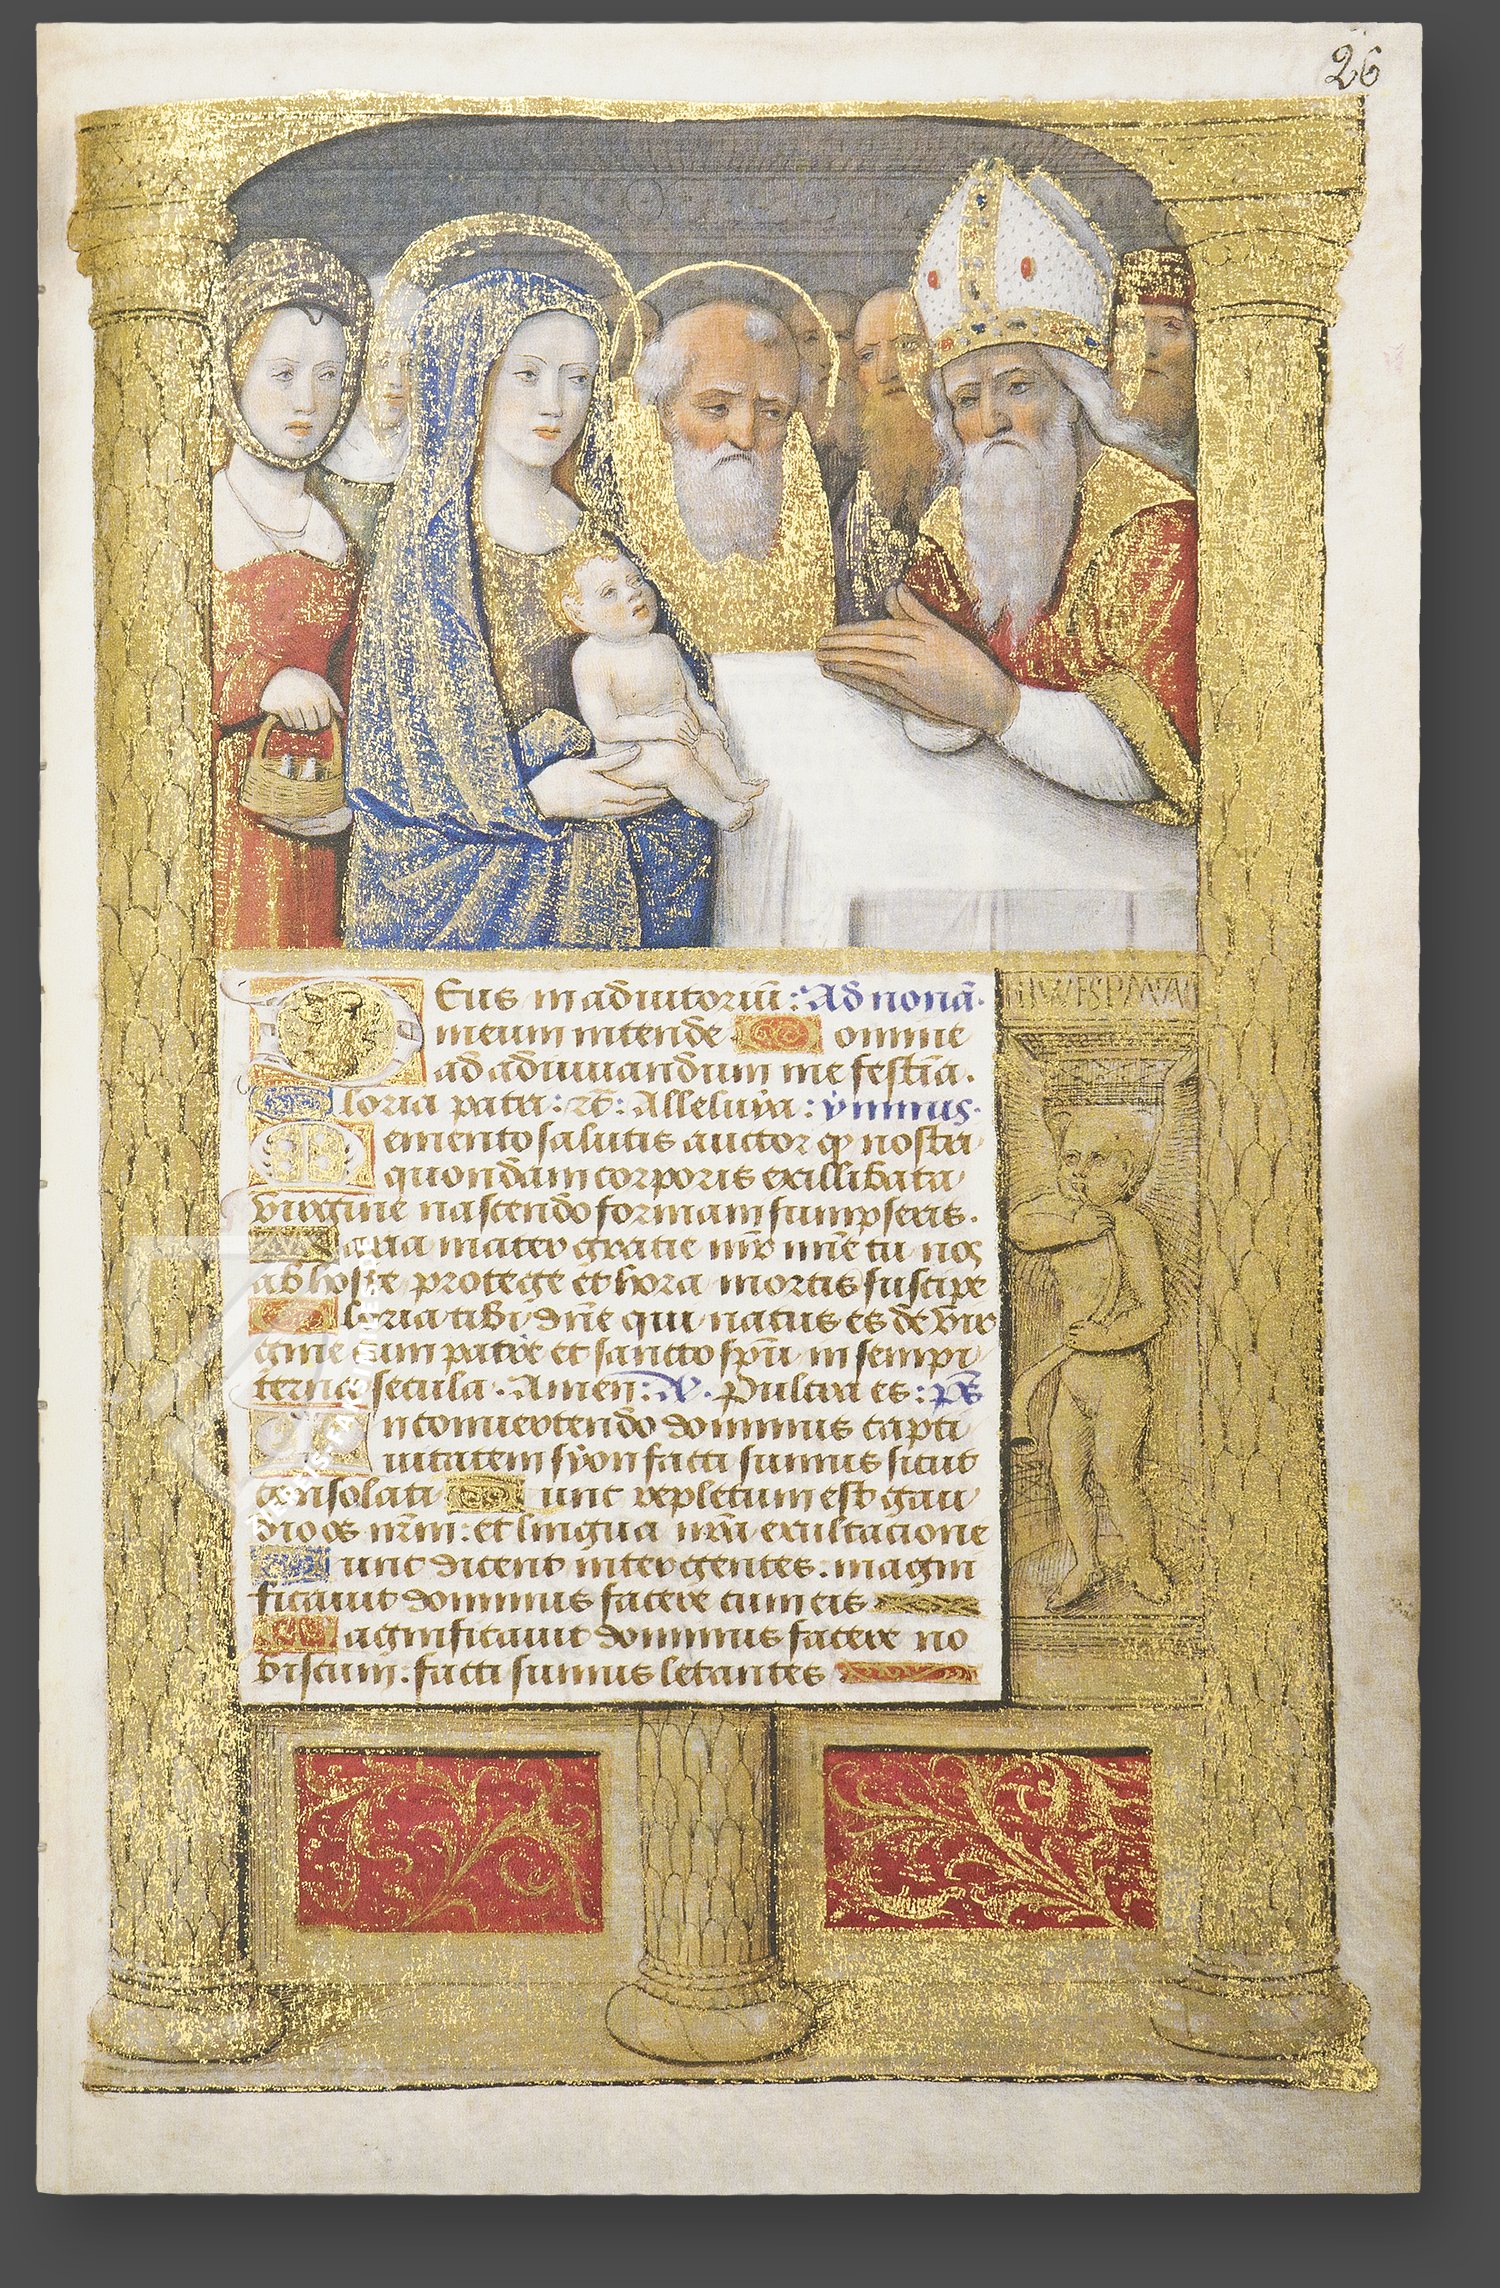 26
Deus in adiutoriū: Ad nonā.
meum intende Domine
ad adiuuandum me festia.
Gloria patri: et: Alleluya: ẏmnus.
Memento salutis auctor q nostri
quondam corporis ex illibata
virgine nascendo formam sumpseris.
Maria mater gratie mr̄ mīe tu nos
ab hoste protege et hora mortis suscipe
Gloria tibi dn̄e qui natus es de vir
gine cum patre et sancto spū in sempi
terna secula. Amen: A. Pulcra es: ps̄
In conuertendo dominus capti
uitatem syon facti sumus sicut
consolati Tunc repletum est gau
dio os nr̄m: et lingua nr̄a exultacione
Tunc dicent inter gentes: magni
ficauit dominus facere cum eis
Magnificauit dominus facere no
biscum: facti sumus letantes